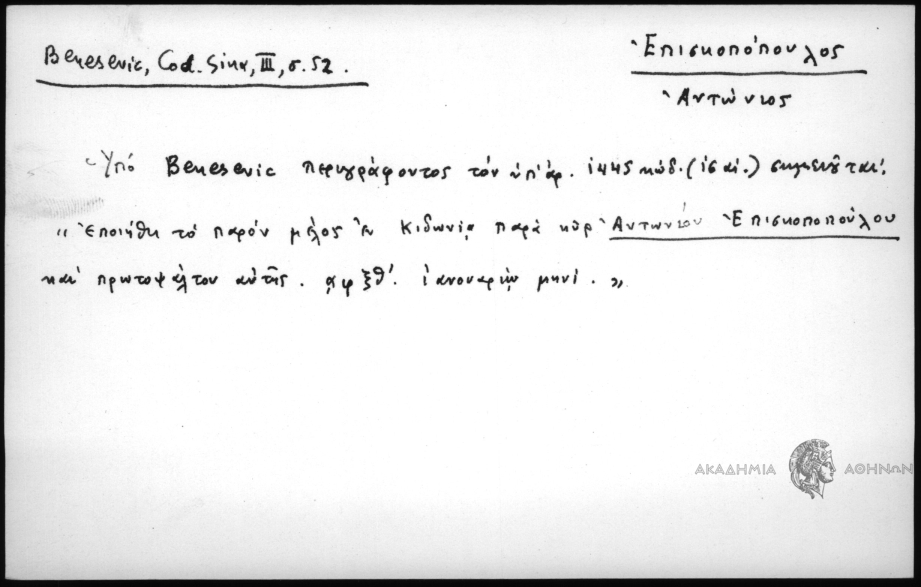 Benesevic, Cod. Sina, III, σ. 52.
Ἐπισκοπόπουλος
Ἀντώνιος
Ὑπό Benesevic περιγράφοντος τόν ὑπ' ἀρ. 1445 κώδ. (ις αἰ.) σημειοῦται:
"Ἐποιήθη τό παρόν μέλος ἐν Κιδωνίᾳ παρά κύρ Ἀντωνίου Ἐπισκοποπούλου
καί πρωτοψάλτου αὐτῆς. ͵αφξθ'. ἰανουαρίῳ μηνί."
ΑΚΑΔΗΜΙΑ ΑΘΗΝΩΝ